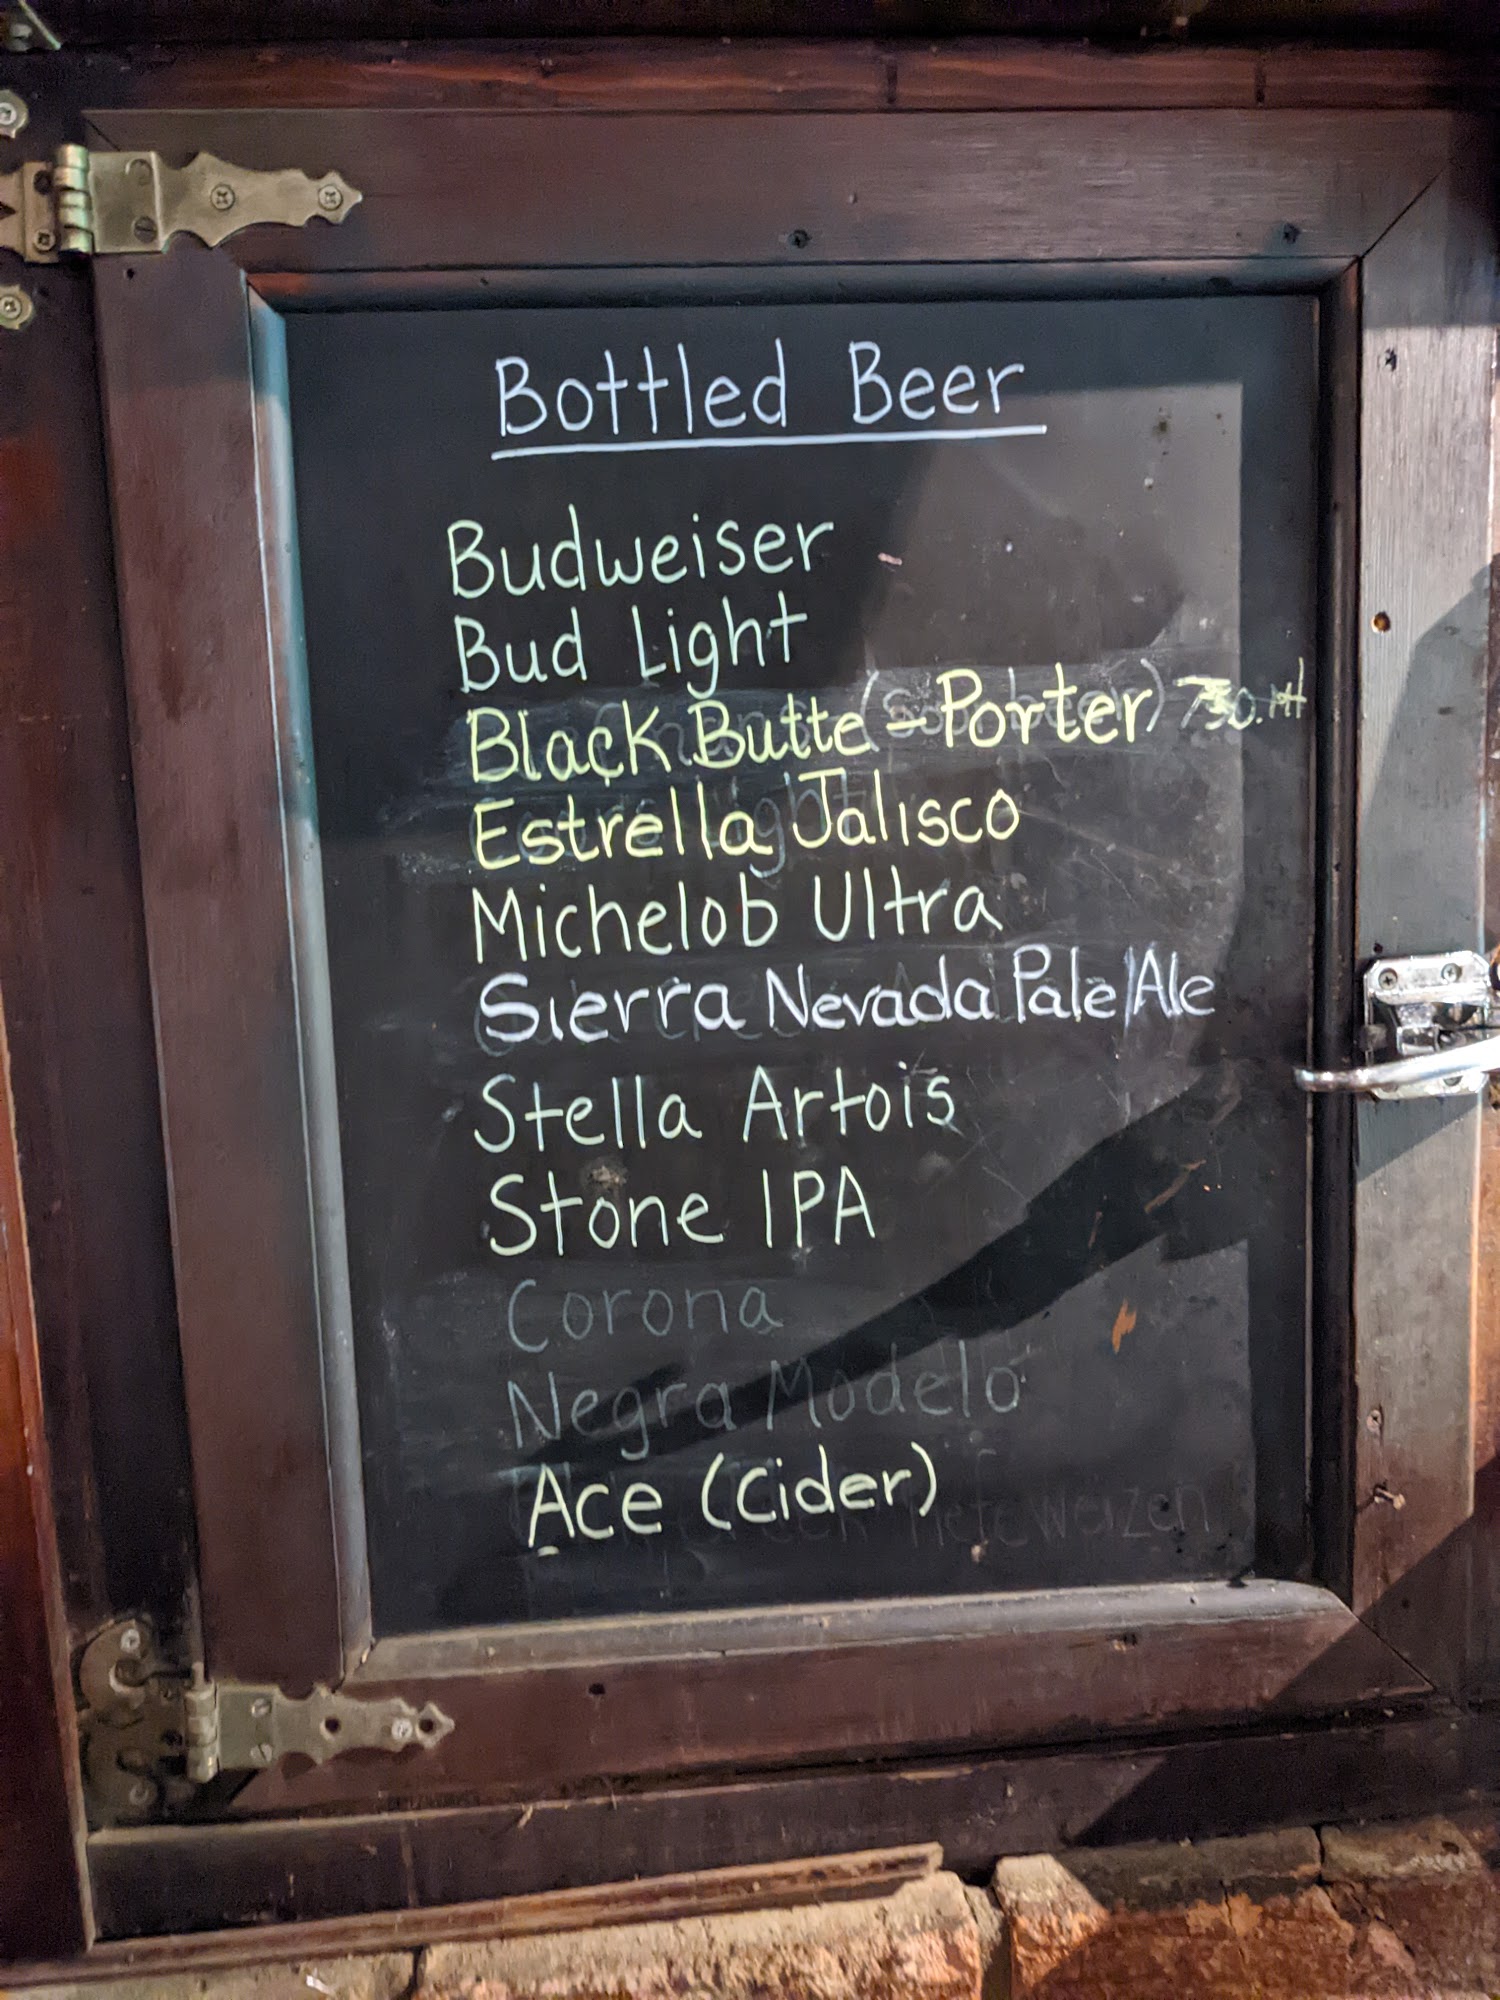 Bottled Beer
Budweiser
Bud Light
Black Butte - Porter 750.ml
Estrella Jalisco
Michelob Ultra
Sierra Nevada Pale Ale
Stella Artois
Stone IPA
Corona
Negra Modelo
Ace (Cider)
Hefeweizen